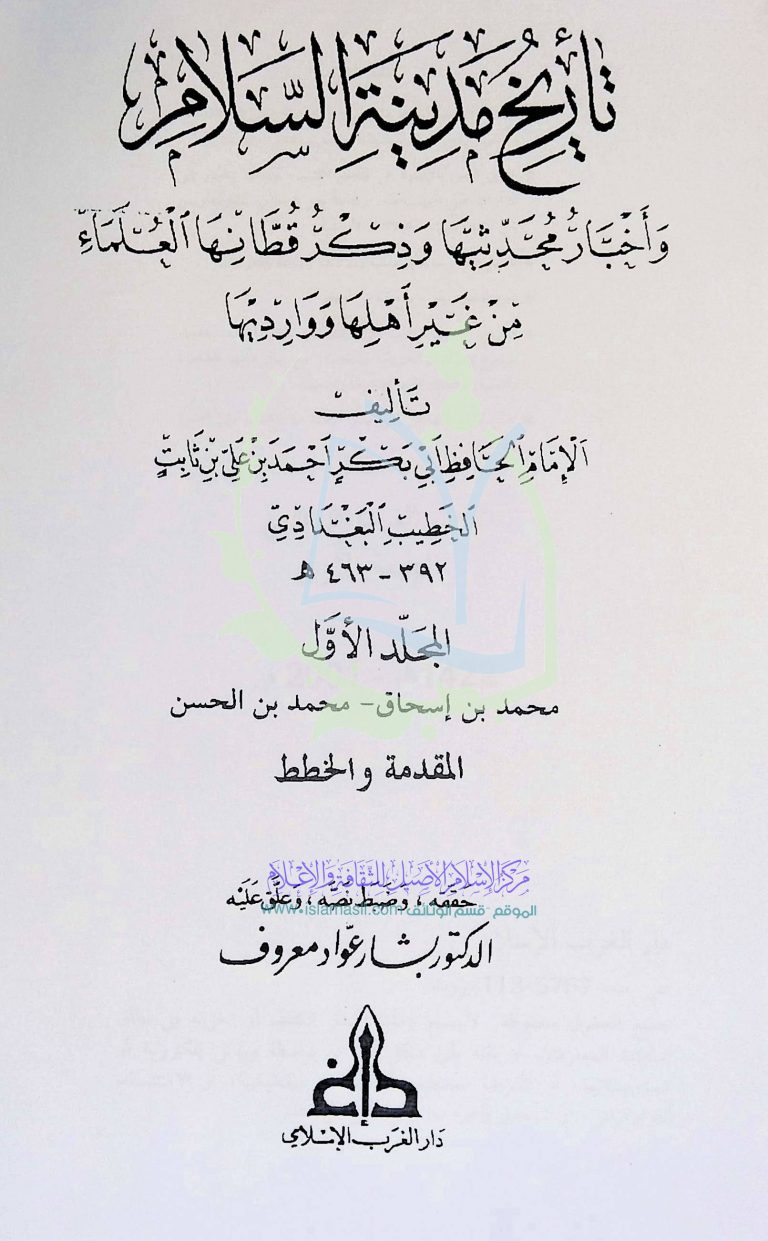 تأريخ مدينة السلام
وأخبار محدثيها وذكر قطانها العلماء
من غير أهلها ووارديها
تأليف
الإمام الحافظ أبي بكر أحمد بن علي بن ثابت
الخطيب البغدادي
٣٩٢ - ٤٦٣ هـ
المجلد الأول
محمد بن إسحاق - محمد بن الحسن
المقدمة والخطط
مركز الإسلام الأصيل للثقافة والإعلام
حققه، وضبط نصه، وعلق عليه
www.islamasil.com الموقع - قسم الوثائق
الدكتور بشار عواد معروف
دار الغرب الإسلامي